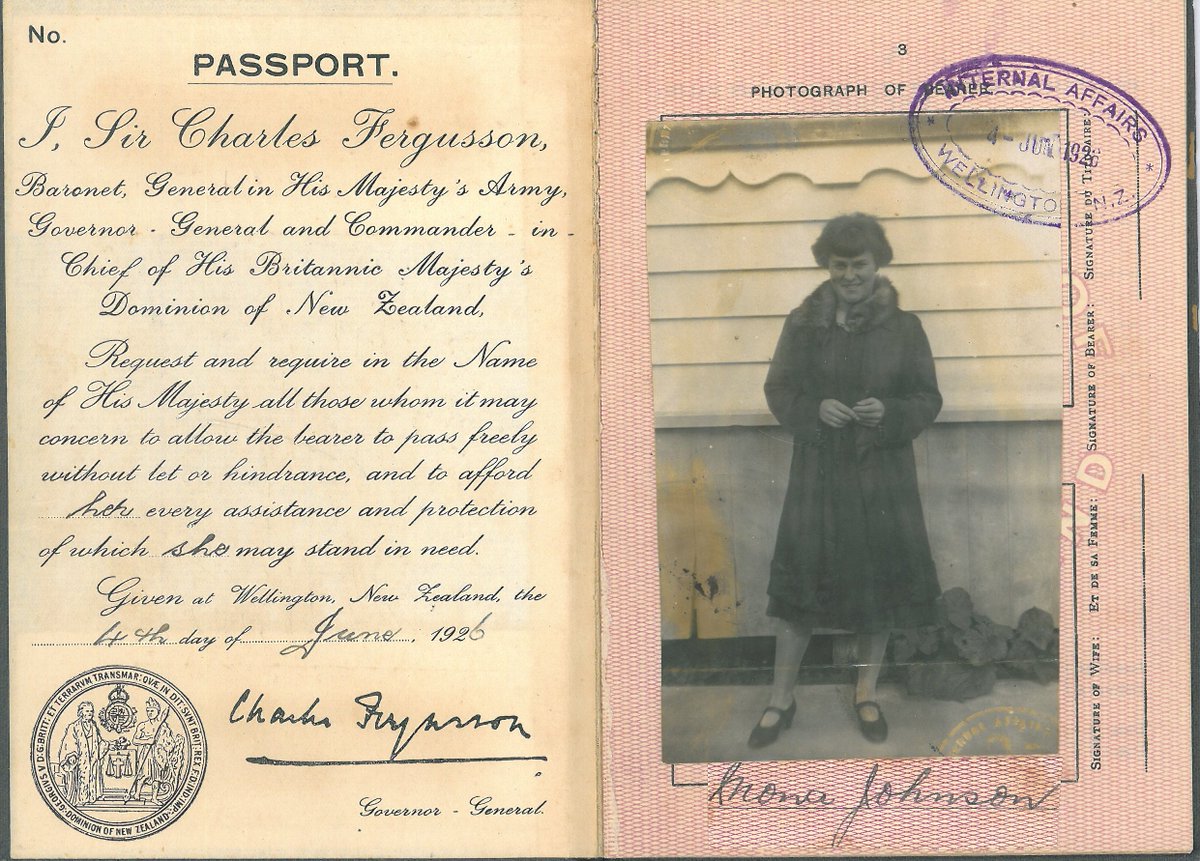 No.
PASSPORT.
I, Sir Charles Fergusson,
Baronet, General in His Majesty's Army,
Governor - General and Commander - in -
Chief of His Britannic Majesty's
Dominion of New Zealand,
Request and require in the Name
of His Majesty all those whom it may
concern to allow the bearer to pass freely
without let or hindrance, and to afford
her every assistance and protection
of which she may stand in need.
Given at Wellington, New Zealand, the
4th day of June, 1926
Charles Fergusson
Governor - General.
GEORGIVS V D:G:BRITT: ET TERRARVM TRANSMAR: QVÆ IN DIT: SINT BRIT: REX F:D: IND: IMP:
DOMINION OF NEW ZEALAND
3
PHOTOGRAPH OF BEARER
INTERNAL AFFAIRS
4 - JUN 1926
WELLINGTON N.Z.
Mona Johnson
SIGNATURE OF BEARER: SIGNATURE DU TITULAIRE:
SIGNATURE OF WIFE: ET DE SA FEMME: